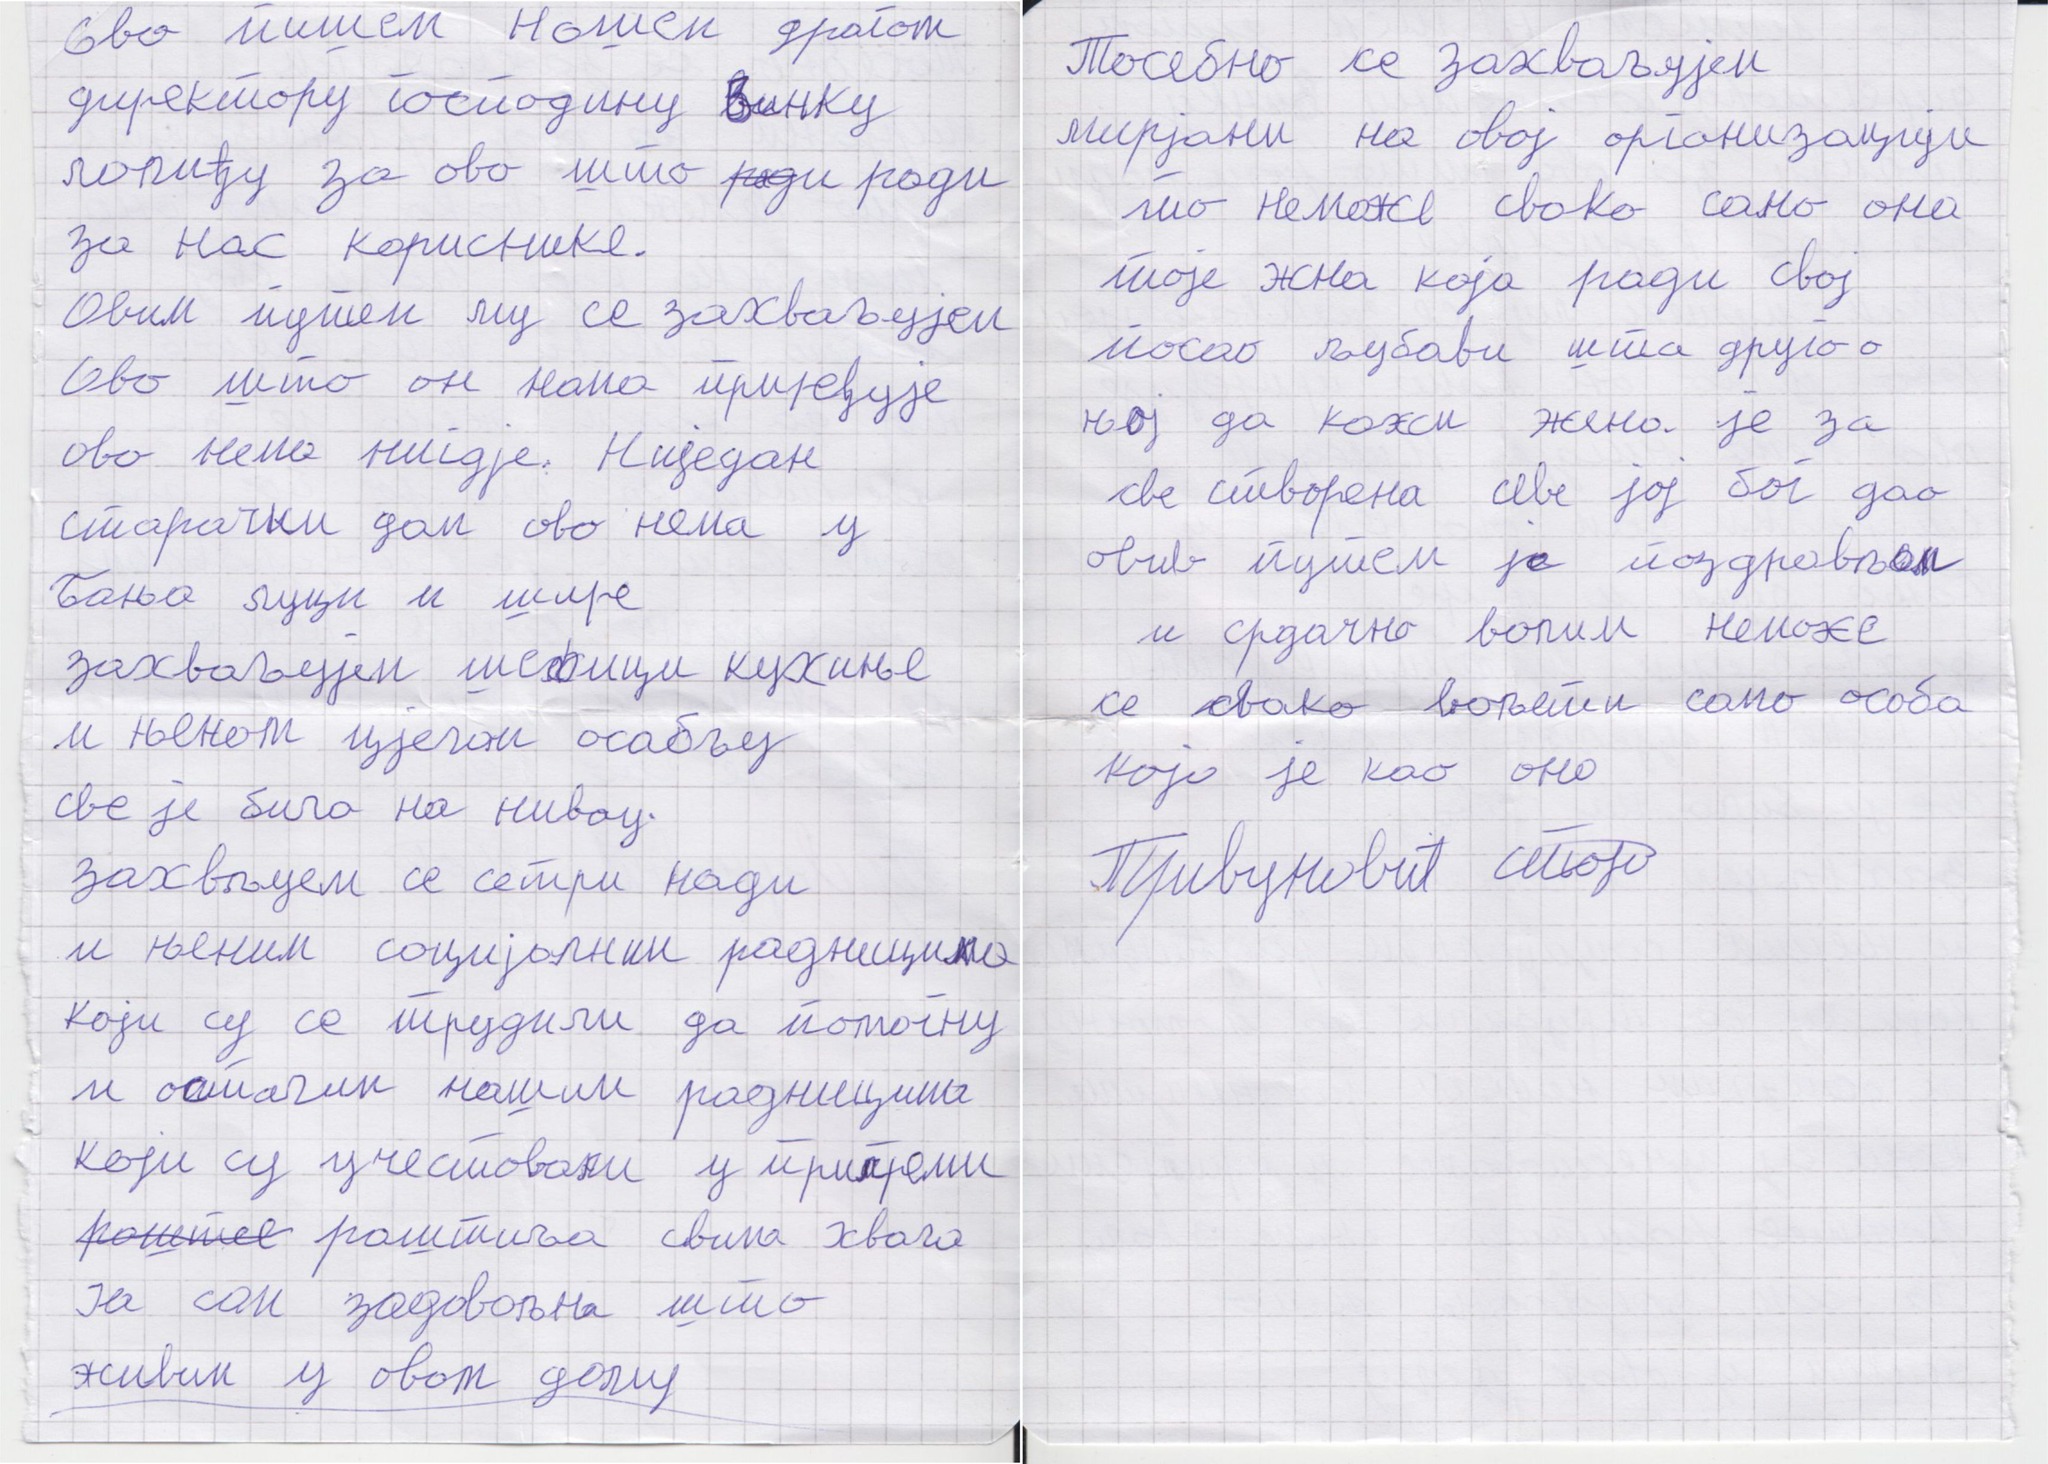 Ово пишем Нашем драгом
директору господину Винку
лолићу за ово што ради ради
за нас кориснике.
Овим путем му се захваљујем
Ово што он нама приређује
ово нема нигдје. Ниједан
старачки дом ово нема у
Бања луци и шире
захваљујем шефици кухиње
и њеном цјелом осабљу
све је било на нивоу.
захвљујем се сетри нади
и њеним социјалним радницима
који су се трудили да помогну
и осталим нашим радницима
који су учествовали у припреми
роштиља свима хвала
Ја сам задовољна што
живим у овом дому
Посебно се захваљујем
мирјани на овој организацији
то неможе свако само она
тоје жна која ради свој
посао љубави шта друго о
њој да кажем жена је за
све створена све јој бог дао
овив путем је поздрављам
и срдачно волим неможе
се свако вољети само особа
која је као она
Тривуновић стоја